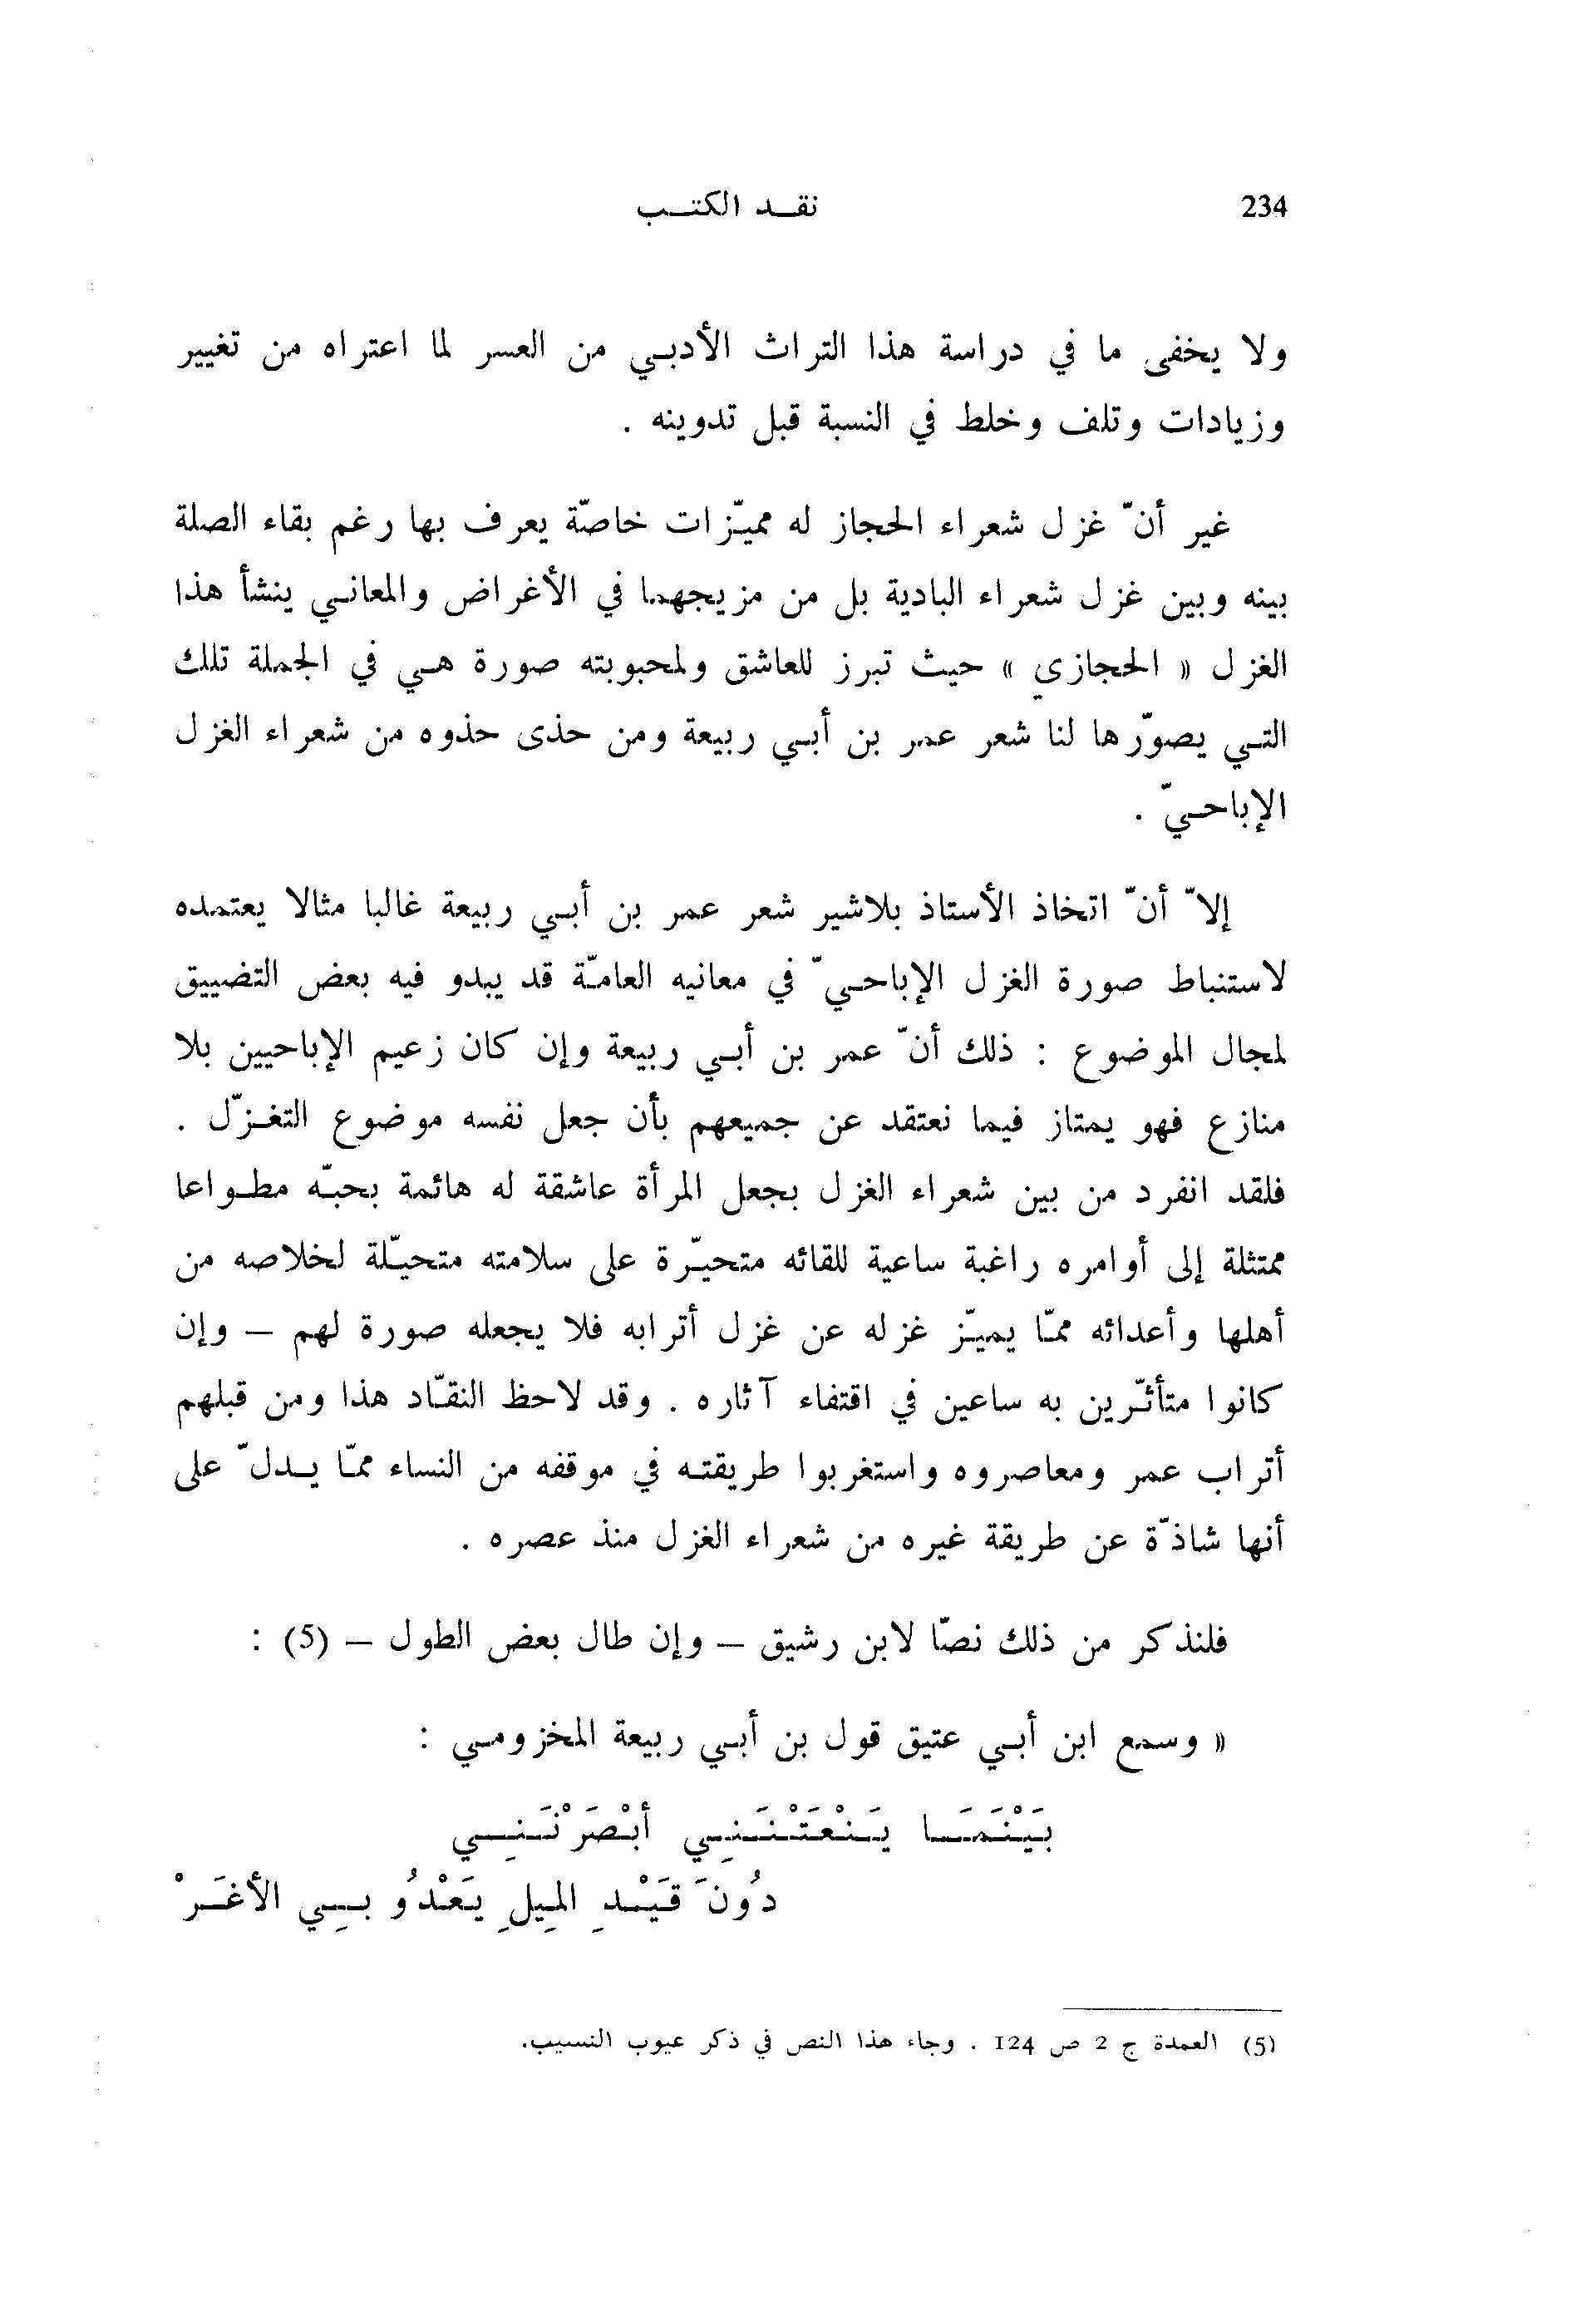 234
نقد الكتب
ولا يخفى ما في دراسة هذا التراث الأدبي من العسر لما اعتراه من تغيير
وزيادات وتلف وخلط في النسبة قبل تدوينه .
غير أنّ غزل شعراء الحجاز له مميّزات خاصّة يعرف بها رغم بقاء الصلة
بينه وبين غزل شعراء البادية بل من مزيجهما في الأغراض والمعاني ينشأ هذا
الغزل « الحجازي » حيث تبرز للعاشق ولمحبوبته صورة هي في الجملة تلك
التي يصوّرها لنا شعر عمر بن أبي ربيعة ومن حذى حذوه من شعراء الغزل
الإباحيّ .
إلاّ أنّ اتخاذ الأستاذ بلاشير شعر عمر بن أبي ربيعة غالبا مثالا يعتمده
لاستنباط صورة الغزل الإباحيّ في معانيه العامّة قد يبدو فيه بعض التضييق
لمجال الموضوع : ذلك أنّ عمر بن أبي ربيعة وإن كان زعيم الإباحيين بلا
منازع فهو يمتاز فيما نعتقد عن جميعهم بأن جعل نفسه موضوع التغزّل .
فلقد انفرد من بين شعراء الغزل بجعل المرأة عاشقة له هائمة بحبّه مطواعا
ممتثلة إلى أوامره راغبة ساعية للقائه متحيّرة على سلامته متحيّلة لخلاصه من
أهلها وأعدائه ممّا يميّز غزله عن غزل أترابه فلا يجعله صورة لهم – وإن
كانوا متأثّرين به ساعين في اقتفاء آثاره . وقد لاحظ النقّاد هذا ومن قبلهم
أتراب عمر ومعاصروه واستغربوا طريقته في موقفه من النساء ممّا يدلّ على
أنها شاذّة عن طريقة غيره من شعراء الغزل منذ عصره .
فلنذكر من ذلك نصّا لابن رشيق – وإن طال بعض الطول – (5) :
« وسمع ابن أبي عتيق قول بن أبي ربيعة المخزومي :
بَيْنَمَا يَنْعَتْنَنِي أبْصَرْنَنِي
دُونَ قَيْدِ المِيلِ يَعْدُو بِي الأغَرْ
(5) العمدة ج 2 ص 124 . وجاء هذا النص في ذكر عيوب النسيب.